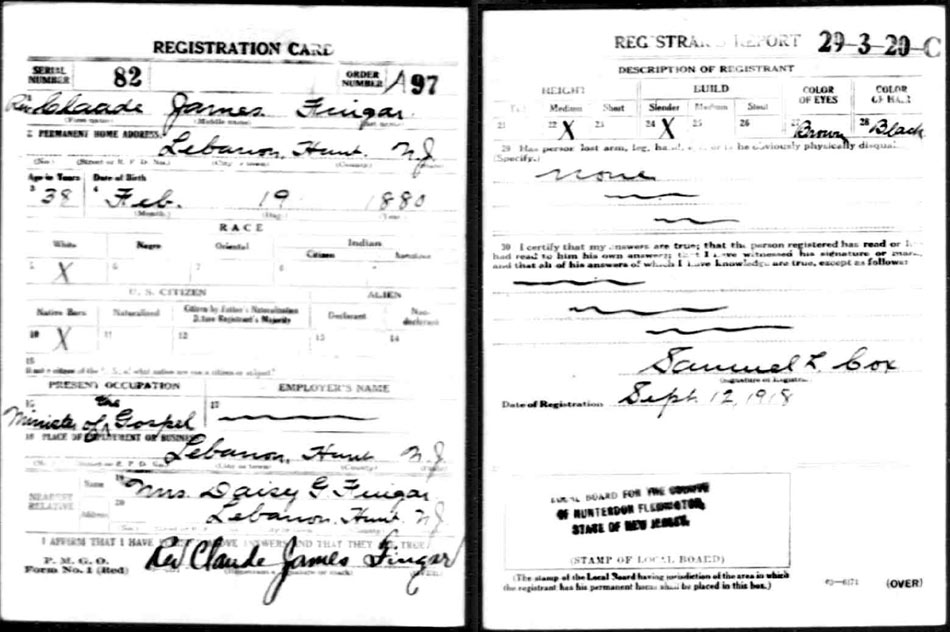 REGISTRATION CARD
SERIAL NUMBER 82 ORDER NUMBER A97
Rev Claude James Fingar
(First name) (Middle name) (Last name)
2 PERMANENT HOME ADDRESS:
Lebanon, Hunt. N.J.
(No.) (Street or R. F. D. No.) (City or town) (County) (State)
Age in Years Date of Birth
3 38 4 Feb. 19 1880
(Month.) (Day.) (Year.)
RACE
White Negro Oriental Indian
Citizen Noncitizen
5 X 6 7 8
U. S. CITIZEN ALIEN
Native Born Naturalized Citizen by Father's Naturalization Before Registrant's Majority Declarant Non-declarant
10 X 11 12 13 14
15
If not a citizen of the U. S., of what nation are you a citizen or subject?
PRESENT OCCUPATION EMPLOYER'S NAME
16 17
Minister of the Gospel
18 PLACE OF EMPLOYMENT OR BUSINESS
Lebanon, Hunt N.J.
(No.) (Street or R. F. D. No.) (City or town) (County) (State)
NEAREST RELATIVE
Name 19 Mrs. Daisy G. Fingar
Address 20 Lebanon. Hunt. N.J.
I AFFIRM THAT I HAVE VERIFIED ABOVE ANSWERS AND THAT THEY ARE TRUE
P. M. G. O.
Form No. 1 (Red)
Rev Claude James Fingar
REGISTRAR'S REPORT 29-3-20-C
DESCRIPTION OF REGISTRANT
HEIGHT BUILD COLOR OF EYES COLOR OF HAIR
Tall Medium Short Slender Medium Stout
21 22 X 23 24 X 25 26 27 Brown 28 Black
29 Has person lost arm, leg, hand, or is he obviously physically disqual
(Specify.)
none
30 I certify that my answers are true; that the person registered has read or has
had read to him his own answers; that I have witnessed his signature or mark,
and that all of his answers of which I have knowledge are true, except as follows:
Samuel L. Cox
(Signature of Registrar)
Date of Registration Sept. 12, 1918
LOCAL BOARD FOR THE COUNTY
OF HUNTERDON FLEMINGTON,
STATE OF NEW JERSEY.
(STAMP OF LOCAL BOARD)
(The stamp of the Local Board having jurisdiction of the area in which
the registrant has his permanent home shall be placed in this box.)
03-6171 (OVER)